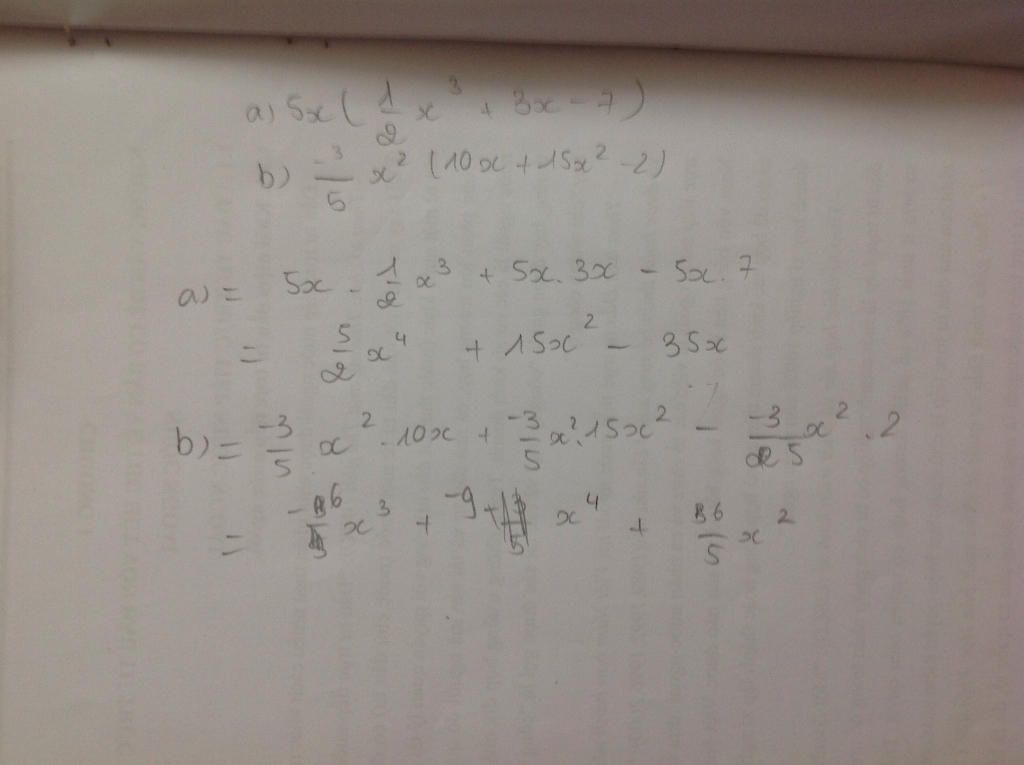 a) 5x ( 1/2 x³ + 3x - 7 )
b) -3/5 x² (10x + 15x² - 2)
a) = 5x . 1/2 x³ + 5x . 3x - 5x . 7
= 5/2 x⁴ + 15x² - 35x
b) = -3/5 x² . 10x + -3/5 x² . 15x² - -3/5 x² . 2
= -6 x³ + -9 x⁴ + 6/5 x²